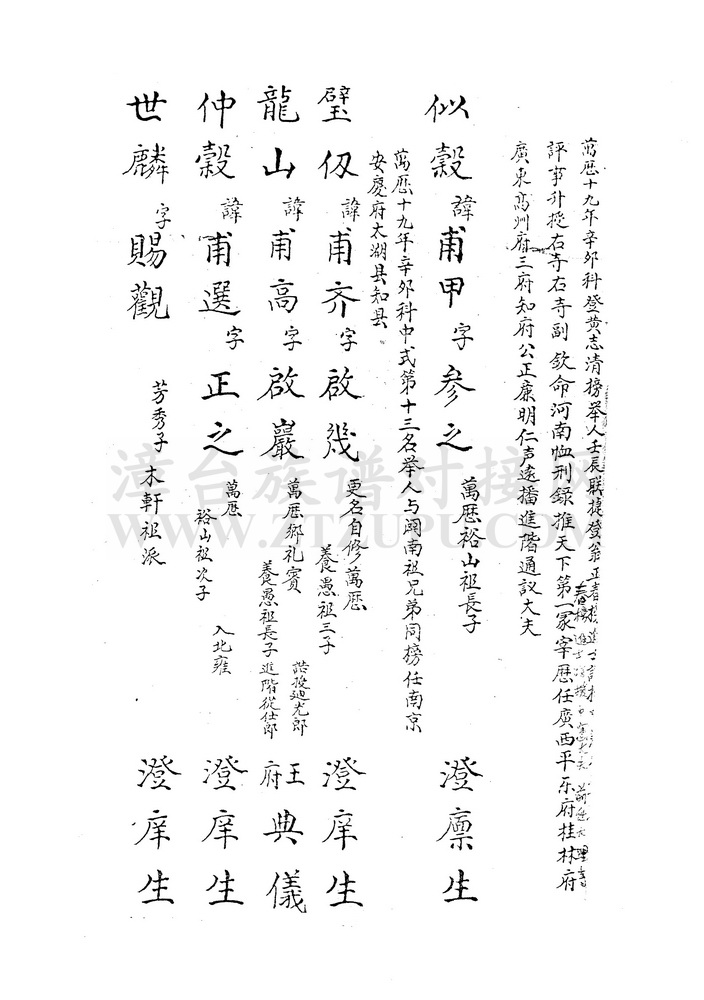 萬歷十九年辛卯科登黄志清榜举人壬辰联捷登翁正春榜進士
評事升授右寺右寺副 欽命河南恤刑録推天下第一冢宰歷任廣西平乐府桂林府
廣東高州府三府知府公正廉明仁声遠播進階通议大夫
似穀 諱甫甲 字参之 萬歷裕山祖長子 澄廪生
萬歷十九年辛卯科中式第十三名举人与闽南祖兄弟同榜任南京
安慶府太湖县知县
璧仭 諱甫齐 字啟幾 更名自修萬歷 養愚祖三子 澄庠生
龍山 諱甫高 字啟巖 萬歷鄉礼賓 養愚祖長子進階從仕郎 誥授廸光郎 王府典儀
仲穀 諱甫選 字正之 萬歷 裕山祖次子 入北雍 澄庠生
世麟 字賜觀 芳秀子 木軒祖派 澄庠生
漳台族谱对接网
WWW.ZTZUPU.COM